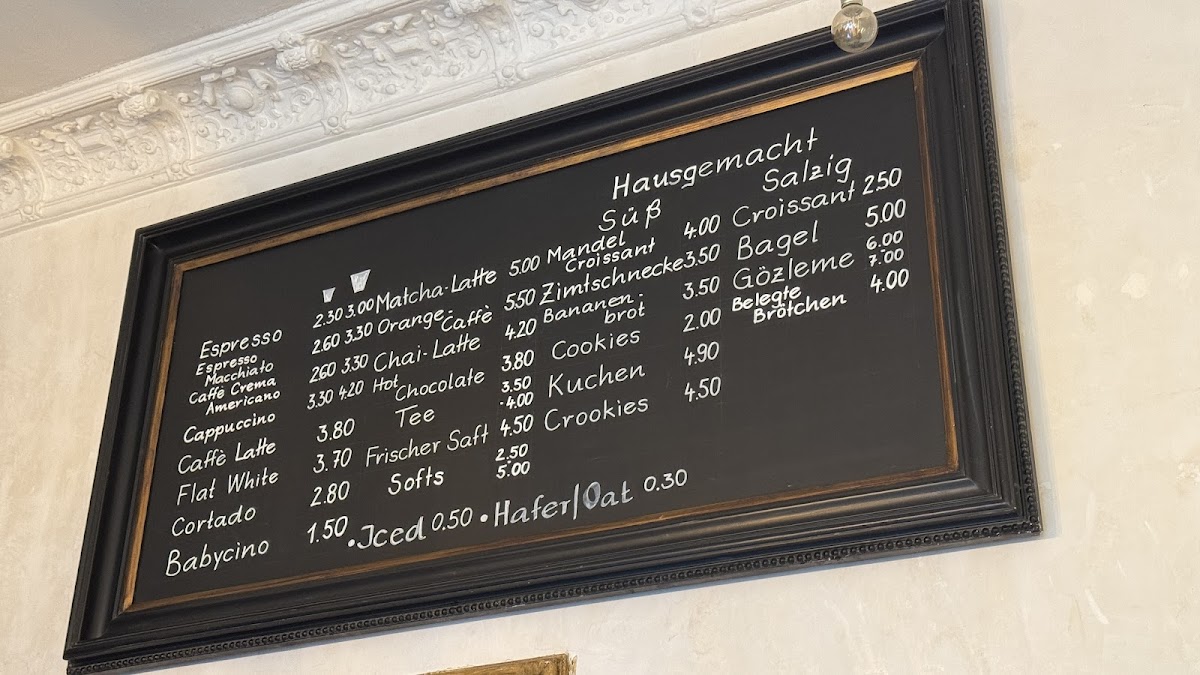 Espresso 2.30 3.00
Espresso
Macchiato 2.60 3.30
Caffè Crema
Americano 2.60 3.30
Cappuccino 3.30 4.20
Caffè Latte 3.80
Flat White 3.70
Cortado 2.80
Babycino 1.50
Matcha-Latte 5.00
Orange-
Caffè 5.50
Chai-Latte 4.20
Hot
Chocolate 3.80
Tee 3.50
-4.00
Frischer Saft 4.50
Softs 2.50
5.00
Hausgemacht
Süß
Mandel
Croissant 4.00
Zimtschnecke 3.50
Bananen-
brot 3.50
Cookies 2.00
Kuchen 4.90
Crookies 4.50
Salzig
Croissant 2.50
Bagel 5.00
Gözleme 6.00
7.00
Belegte
Brötchen 4.00
•Iced 0.50 •Hafer/Oat 0.30